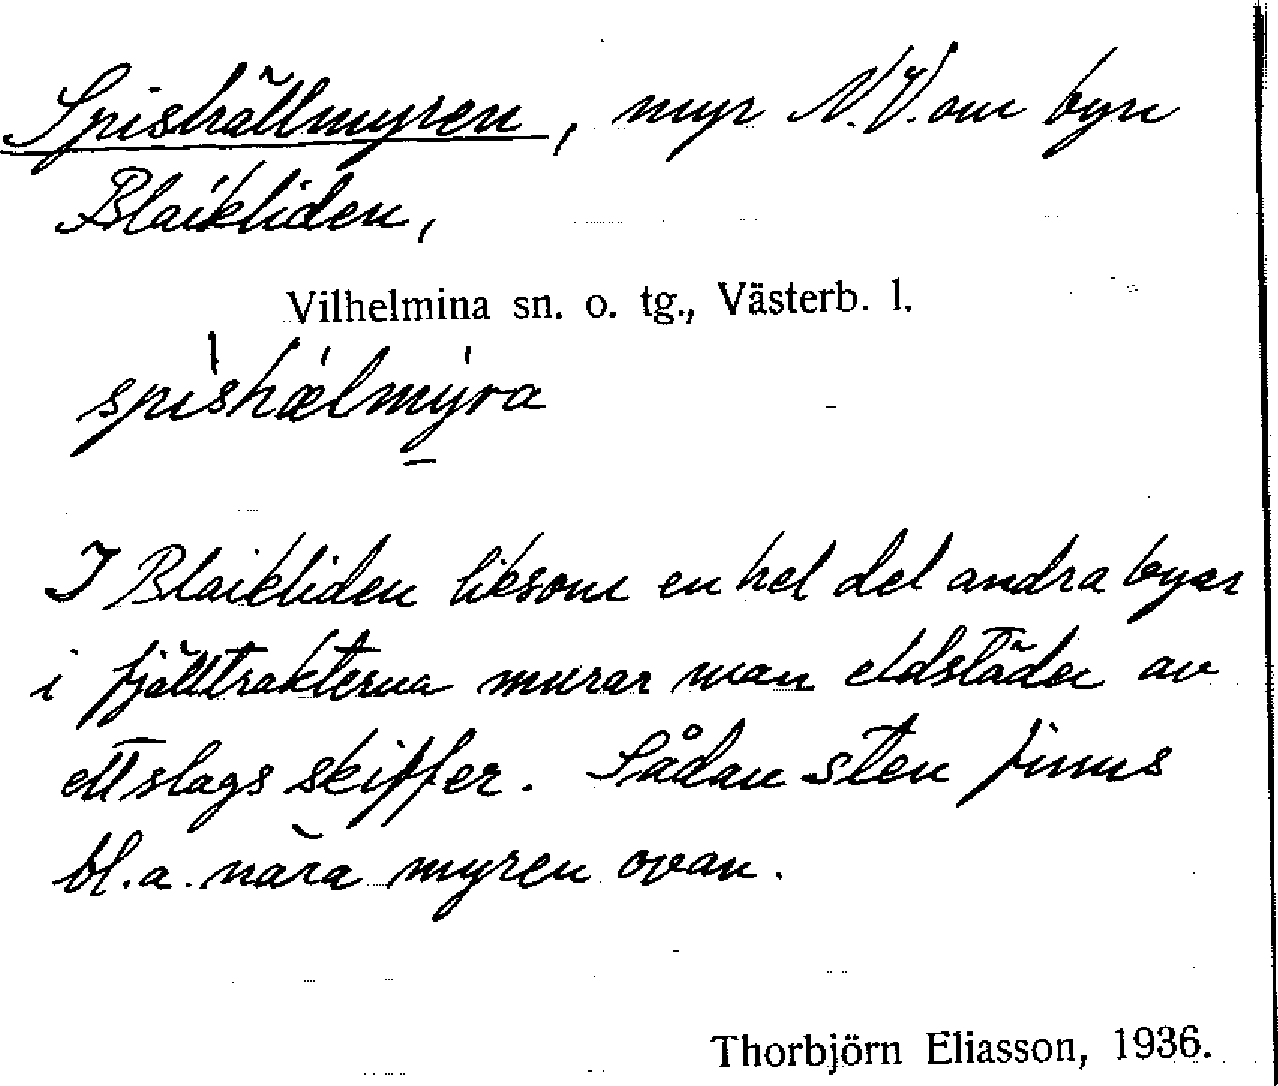 Spishällmyren, myr N.V. om byn
Blaikliden,
Vilhelmina sn. o. tg., Västerb. l.
spishælmyra
I Blaikliden liksom en hel del andra byar
i fjälltrakterna murar man eldstäder av
ett slags skiffer. Sådan sten finns
bl.a. nära myren ovan.
Thorbjörn Eliasson, 1936.